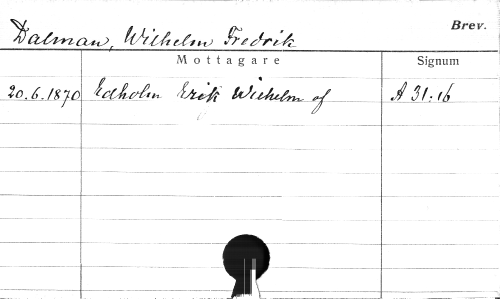 Brev.
Dalman, Wilhelm Fredrik
Mottagare Signum
20.6.1870 Edholm Erik Wilhelm af A 31:16